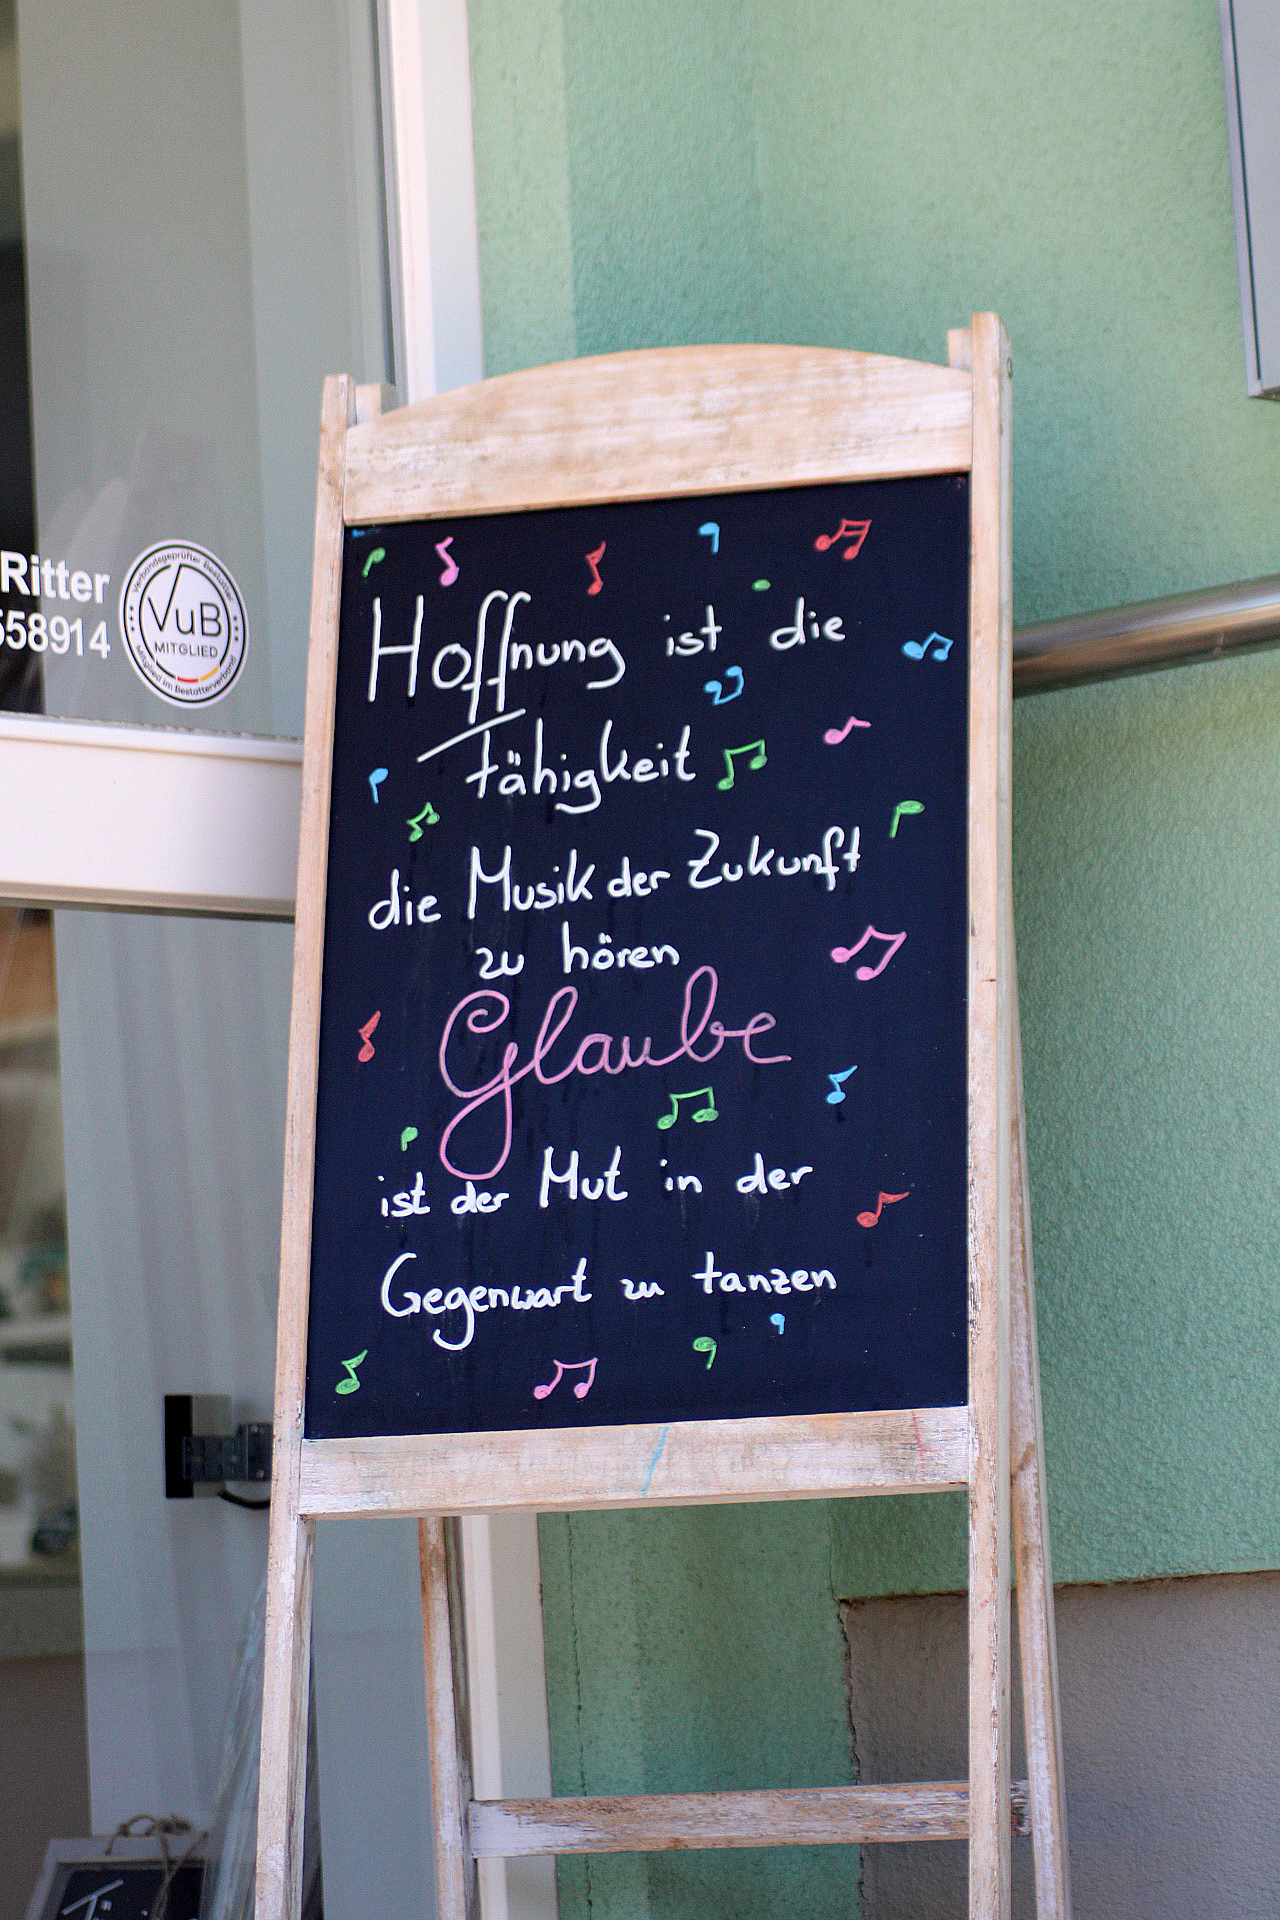 Ritter
558914
Verbandsgeprüfter Bestatter
VuB
MITGLIED
Mitglied im Bestatterverband
Hoffnung ist die
Fähigkeit
die Musik der Zukunft
zu hören
Glaube
ist der Mut in der
Gegenwart zu tanzen